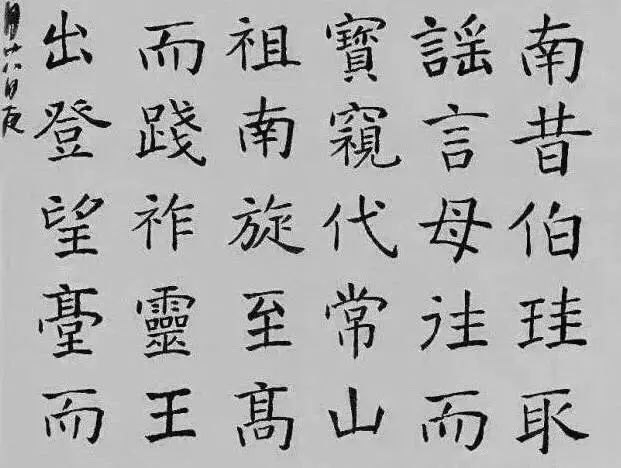 南昔伯珪取
謡言母往而
寶窺代常山
祖南旋至髙
而踐祚靈王
出登望臺而
月廿八日夜